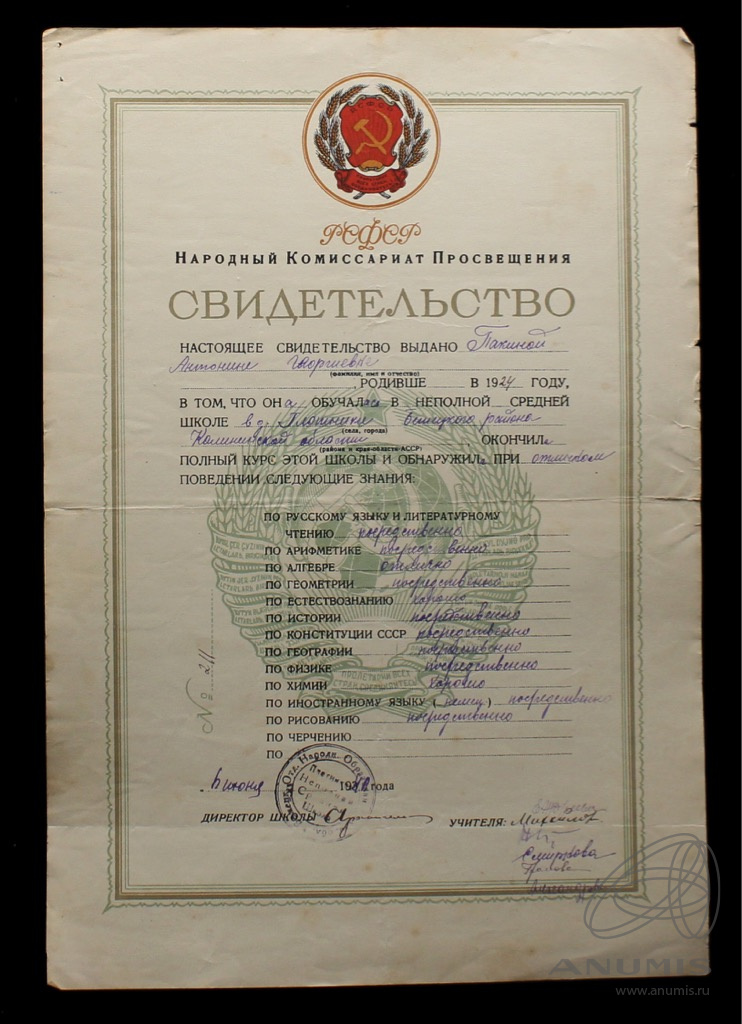 РСФСР
НАРОДНЫЙ КОМИССАРИАТ ПРОСВЕЩЕНИЯ
СВИДЕТЕЛЬСТВО
НАСТОЯЩЕЕ СВИДЕТЕЛЬСТВО ВЫДАНО Пакиной
Антонине Георгиевне
(фамилия, имя и отчество)
РОДИВШЕ В 1924 ГОДУ,
В ТОМ, ЧТО ОНа ОБУЧАлась В НЕПОЛНОЙ СРЕДНЕЙ
ШКОЛЕ в д. Плотники района
(села, города)
Калининской области ОКОНЧИЛа
(района и края-области-АССР)
ПОЛНЫЙ КУРС ЭТОЙ ШКОЛЫ И ОБНАРУЖИЛа ПРИ отличном
ПОВЕДЕНИИ СЛЕДУЮЩИЕ ЗНАНИЯ:
ПО РУССКОМУ ЯЗЫКУ И ЛИТЕРАТУРНОМУ
ЧТЕНИЮ посредственно
ПО АРИФМЕТИКЕ посредственно
ПО АЛГЕБРЕ отлично
ПО ГЕОМЕТРИИ посредственно
ПО ЕСТЕСТВОЗНАНИЮ хорошо
ПО ИСТОРИИ посредственно
ПО КОНСТИТУЦИИ СССР посредственно
ПО ГЕОГРАФИИ посредственно
ПО ФИЗИКЕ посредственно
ПО ХИМИИ хорошо
ПО ИНОСТРАННОМУ ЯЗЫКУ (немец) посредственно
ПО РИСОВАНИЮ посредственно
ПО ЧЕРЧЕНИЮ
ПО
№ 211
ПРОЛЕТАРИИ ВСЕХ
СТРАН, СОЕДИНЯЙТЕСЬ
6 июня года
ДИРЕКТОР ШКОЛЫ
УЧИТЕЛЯ:
Смирнова
ANUMIS
www.anumis.ru